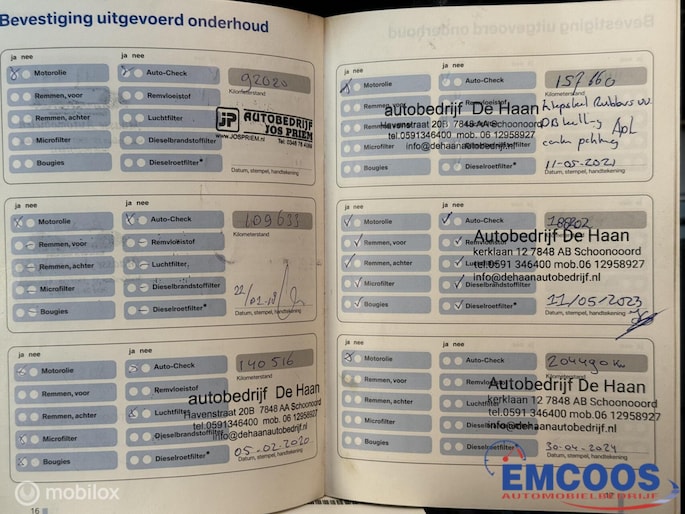 Bevestiging uitgevoerd onderhoud
ja nee
ja nee
Motorolie
Auto-Check
92020
Kilometerstand
Remmen, voor
Remvloeistof
Remmen, achter
Luchtfilter
JP AUTOBEDRIJF
JOS PRIEM
www.JOSPRIEM.nl
Microfilter
Dieselbrandstoffilter
Bougies
Dieselroetfilter*
Datum, stempel, handtekening
ja nee
ja nee
Motorolie
Auto-Check
109633
Kilometerstand
Remmen, voor
Remvloeistof
Remmen, achter
Luchtfilter
Microfilter
Dieselbrandstoffilter
Bougies
Dieselroetfilter*
Datum, stempel, handtekening
ja nee
ja nee
Motorolie
Auto-Check
140516
Kilometerstand
Remmen, voor
Remvloeistof
autobedrijf De Haan
Remmen, achter
Luchtfilter
Havenstraat 20B 7848 AA Schoonoord
tel.0591346400 mob. 06 12958927
Microfilter
Dieselbrandstoffilter
info@dehaanautobedrijf.nl
Bougies
Dieselroetfilter*
05-02-2020
Datum, stempel, handtekening
16
ja nee
ja nee
Motorolie
Auto-Check
Kilometerstand
Remmen, voor
Remvloeistof
autobedrijf De Haan
Remmen, achter
Luchtfilter
Havenstraat 20B 7848 AA Schoonoord
tel.0591346400 mob. 06 12958927
Microfilter
info@dehaanautobedrijf.nl
Bougies
Dieselroetfilter*
11-05-2021
Datum, stempel, handtekening
ja nee
ja nee
Motorolie
Auto-Check
Remmen, voor
Remvloeistof
Autobedrijf De Haan
kerklaan 12 7848 AB Schoonoord
Remmen, achter
tel.0591 346400 mob.06 12958927
Microfilter
Dieselbrandstoffilter
info@dehaanautobedrijf.nl
Bougies
Dieselroetfilter*
11/05/2023
Datum, stempel, handtekening
ja nee
ja nee
Motorolie
Auto-Check
204490 km
Kilometerstand
Remmen, voor
Autobedrijf De Haan
Remmen, achter
kerklaan 12 7848 AB Schoonoord
tel.0591 346400 mob.06 12958927
Microfilter
info@dehaanautobedrijf.nl
Bougies
Dieselroetfilter*
30-04-2024
Datum, stempel, handtekening
EMCOOS
AUTOMOBIELBEDRIJF
mobilox